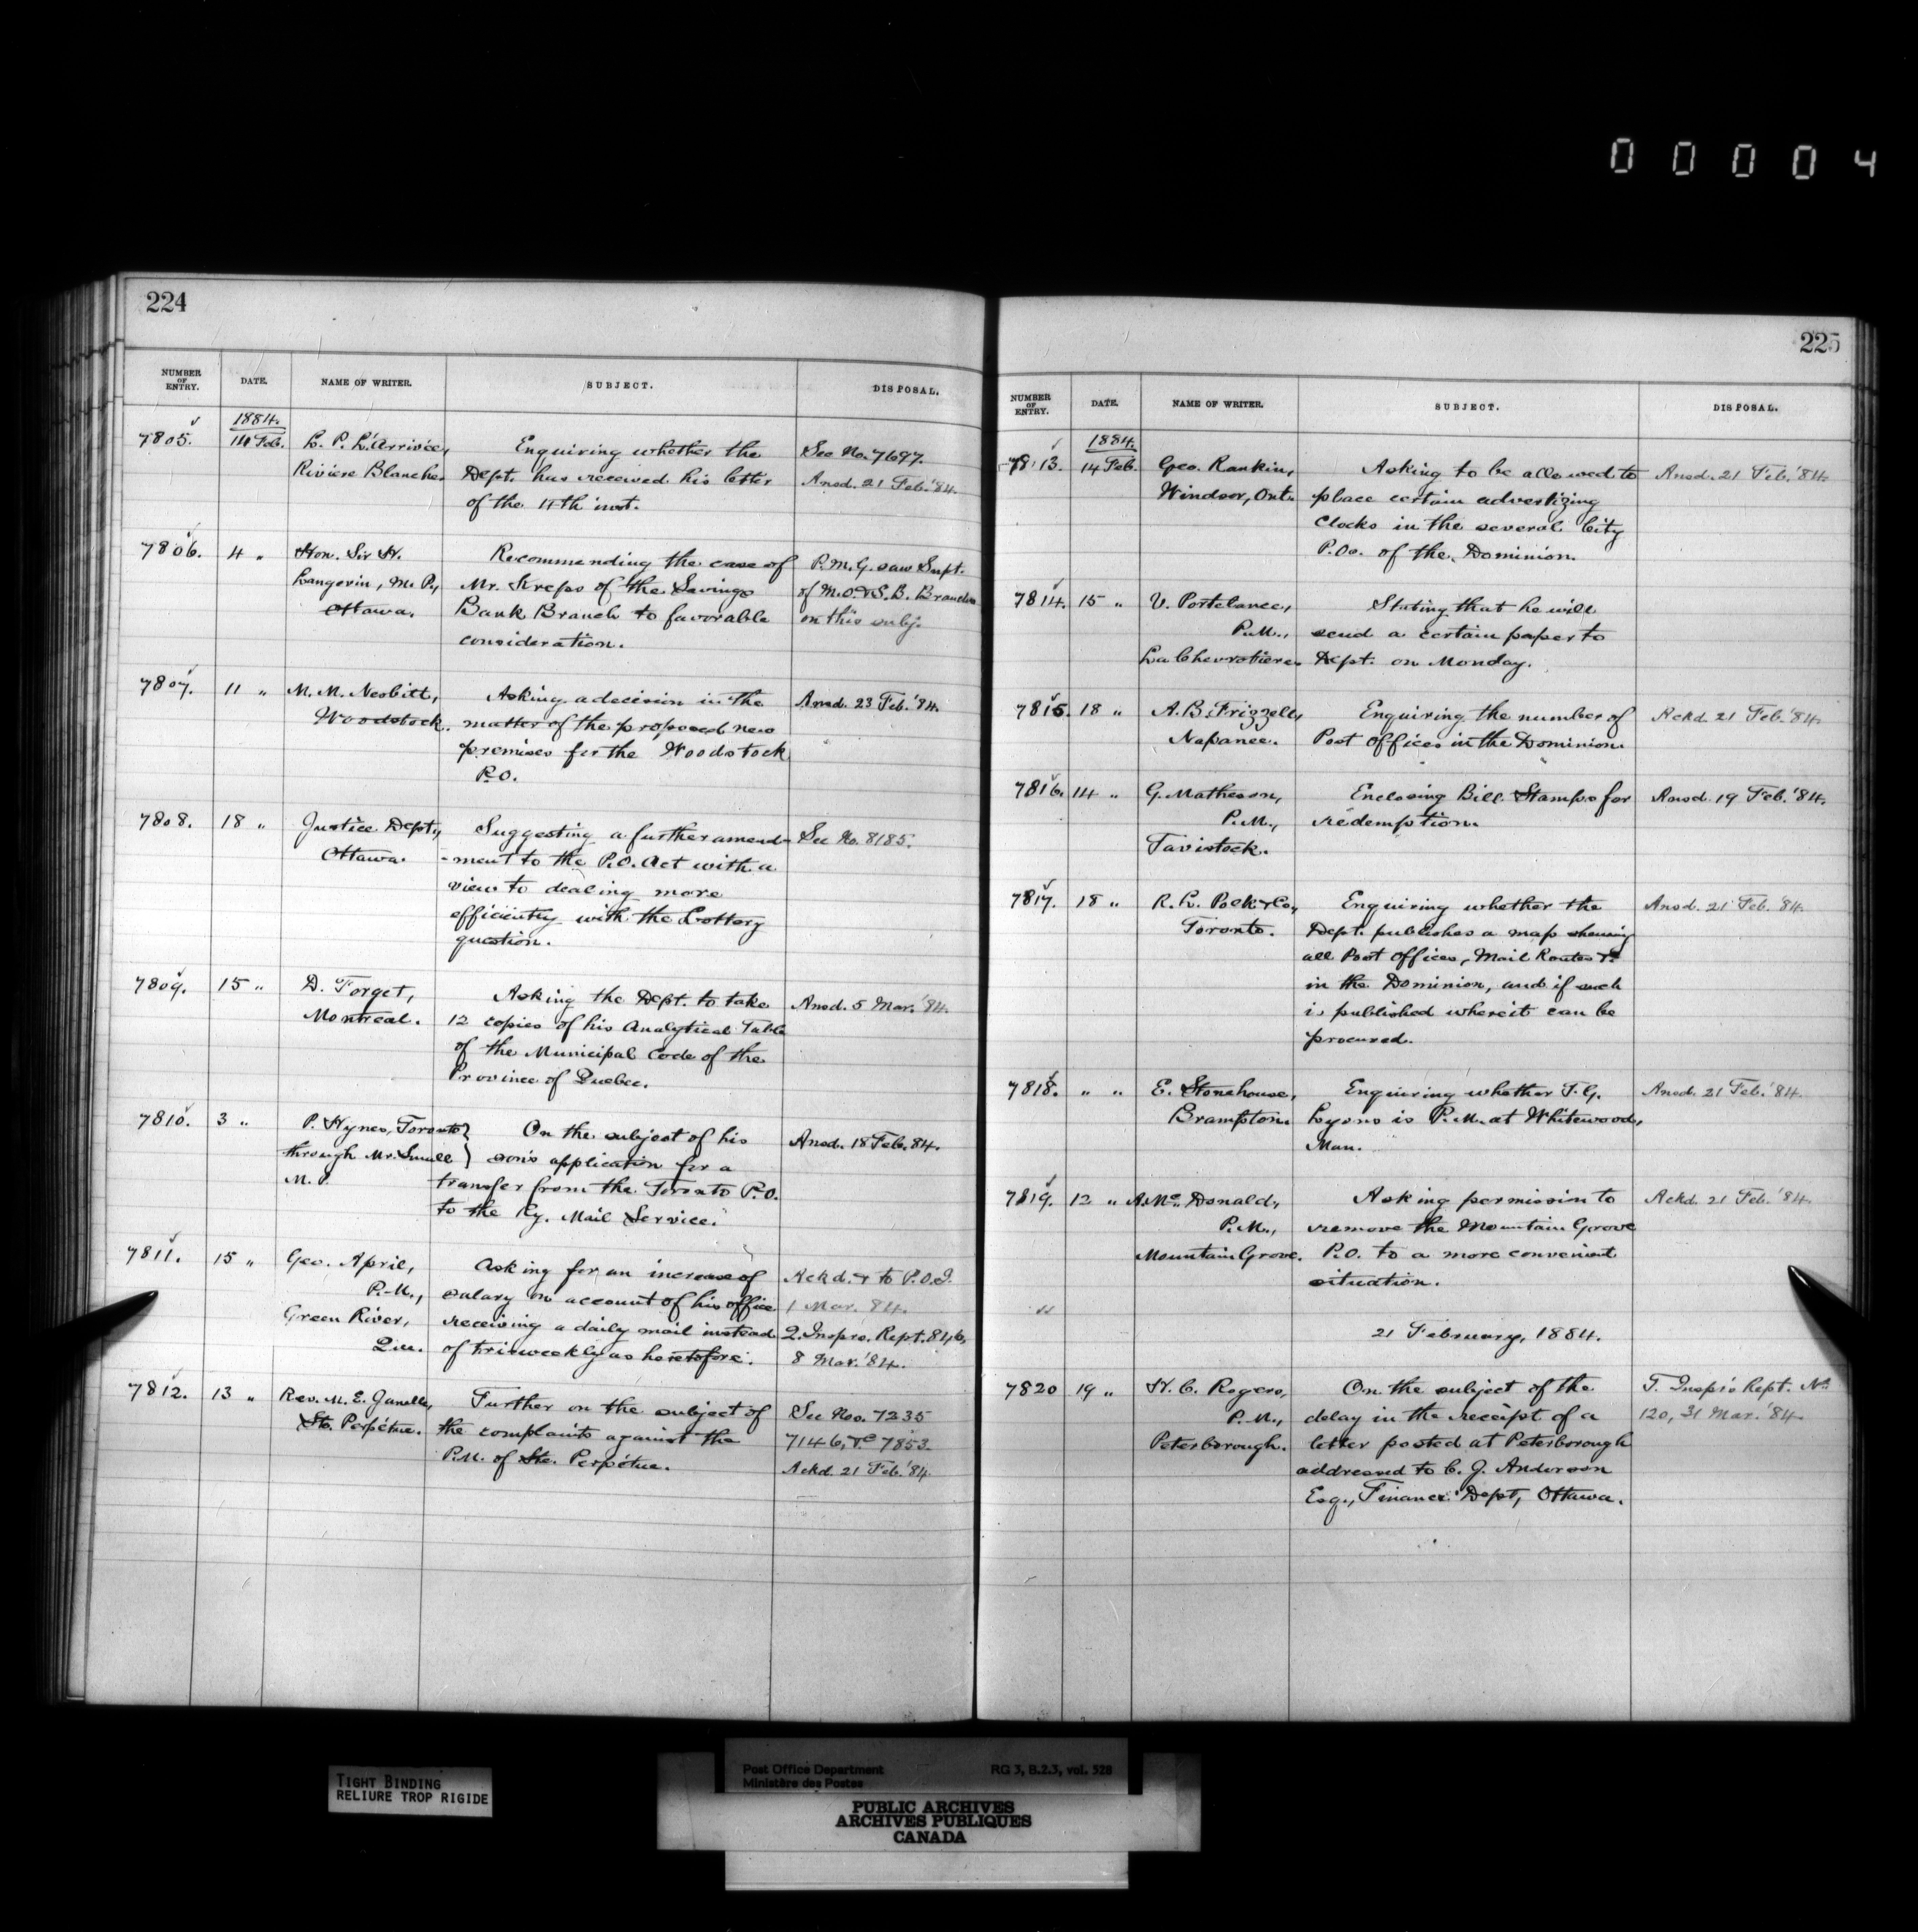 00004
224
NUMBER OF ENTRY. DATE. NAME OF WRITER. SUBJECT. DISPOSAL.
1884.
7805. 14 Feb. L. P. L'Arrivée, Enquiring whether the See No. 7697.
Rivière Blanche. Dept. has received his letter Ansd. 21 Feb. '84.
of the 4th inst.
7806. 4 " Hon. Sir H. Recommending the case of P.M.G. saw Supt.
Langevin, M.P., Mr. Kreps of the Savings of M.O. & S.B. Branch
Ottawa. Bank Branch to favorable on this subj.
consideration.
7807. 11 " M. M. Nesbitt, Asking a decision in the Ansd. 23 Feb. '84.
Woodstock. matter of the proposed new
premises for the Woodstock
P.O.
7808. 18 " Justice Dept., Suggesting a further amend- See No. 8185.
Ottawa. -ment to the P.O. Act with a
view to dealing more
efficiently with the Lottery
question.
7809. 15 " D. Forget, Asking the Dept. to take Ansd. 5 Mar. '84.
Montreal. 12 copies of his Analytical Table
of the Municipal Code of the
Province of Quebec.
7810. 3 " P. Hynes, Toronto } On the subject of his Ansd. 18 Feb. 84.
through Mr. Small } son's application for a
M.P. transfer from the Toronto P.O.
to the Ry. Mail Service.
7811. 15 " Geo. April, Asking for an increase of Ackd. & to P.O.I.
P.M., salary on account of his office 1 Mar. 84.
Green River, receiving a daily mail instead Q. Inspr's. Rept. 846,
Que. of triweekly as heretofore. 8 Mar. '84.
7812. 13 " Rev. M. E. Janelle, Further on the subject of See Nos. 7235
Ste. Perpétue. the complaints against the 7146, &c 7853
P.M. of Ste. Perpétue. Ackd. 21 Feb. '84.
225
NUMBER OF ENTRY. DATE. NAME OF WRITER. SUBJECT. DISPOSAL.
1884.
7813. 14 Feb. Geo. Rankin, Asking to be allowed to Ansd. 21 Feb. '84.
Windsor, Ont. place certain advertizing
Clocks in the several City
P.Os. of the Dominion.
7814. 15 " V. Portelance, Stating that he will
P.M., send a certain paper to
La Chevrotière. Dept. on Monday.
7815. 18 " A. B. Frizzell, Enquiring the number of Ackd. 21 Feb. '84.
Napanee. Post Offices in the Dominion.
7816. 14 " G. Matheson, Enclosing Bill Stamps for Ansd. 19 Feb. '84.
P.M., redemption.
Tavistock.
7817. 18 " R. L. Polk & Co., Enquiring whether the Ansd. 21 Feb. '84.
Toronto. Dept. publishes a map shewing
all Post Offices, Mail Routes &c
in the Dominion, and if such
is published where it can be
procured.
7818. " " E. Stonehouse, Enquiring whether J. G. Ansd. 21 Feb. '84.
Brampton. Lyons is P.M. at Whitewood,
Man.
7819. 12 " A. McDonald, Asking permission to Ackd. 21 Feb. '84.
P.M., remove the Mountain Grove
Mountain Grove. P.O. to a more convenient
situation.
21 February, 1884.
7820 19 " H. C. Rogers, On the subject of the T. Inspr's Rept. No.
P.M., delay in the receipt of a 120, 31 Mar. '84.
Peterborough. letter posted at Peterborough
addressed to C. J. Anderson
Esq., Finance Dept, Ottawa.
TIGHT BINDING
RELIURE TROP RIGIDE
Post Office Department RG 3, B.2.3, vol. 328
Ministère des Postes
PUBLIC ARCHIVES
ARCHIVES PUBLIQUES
CANADA